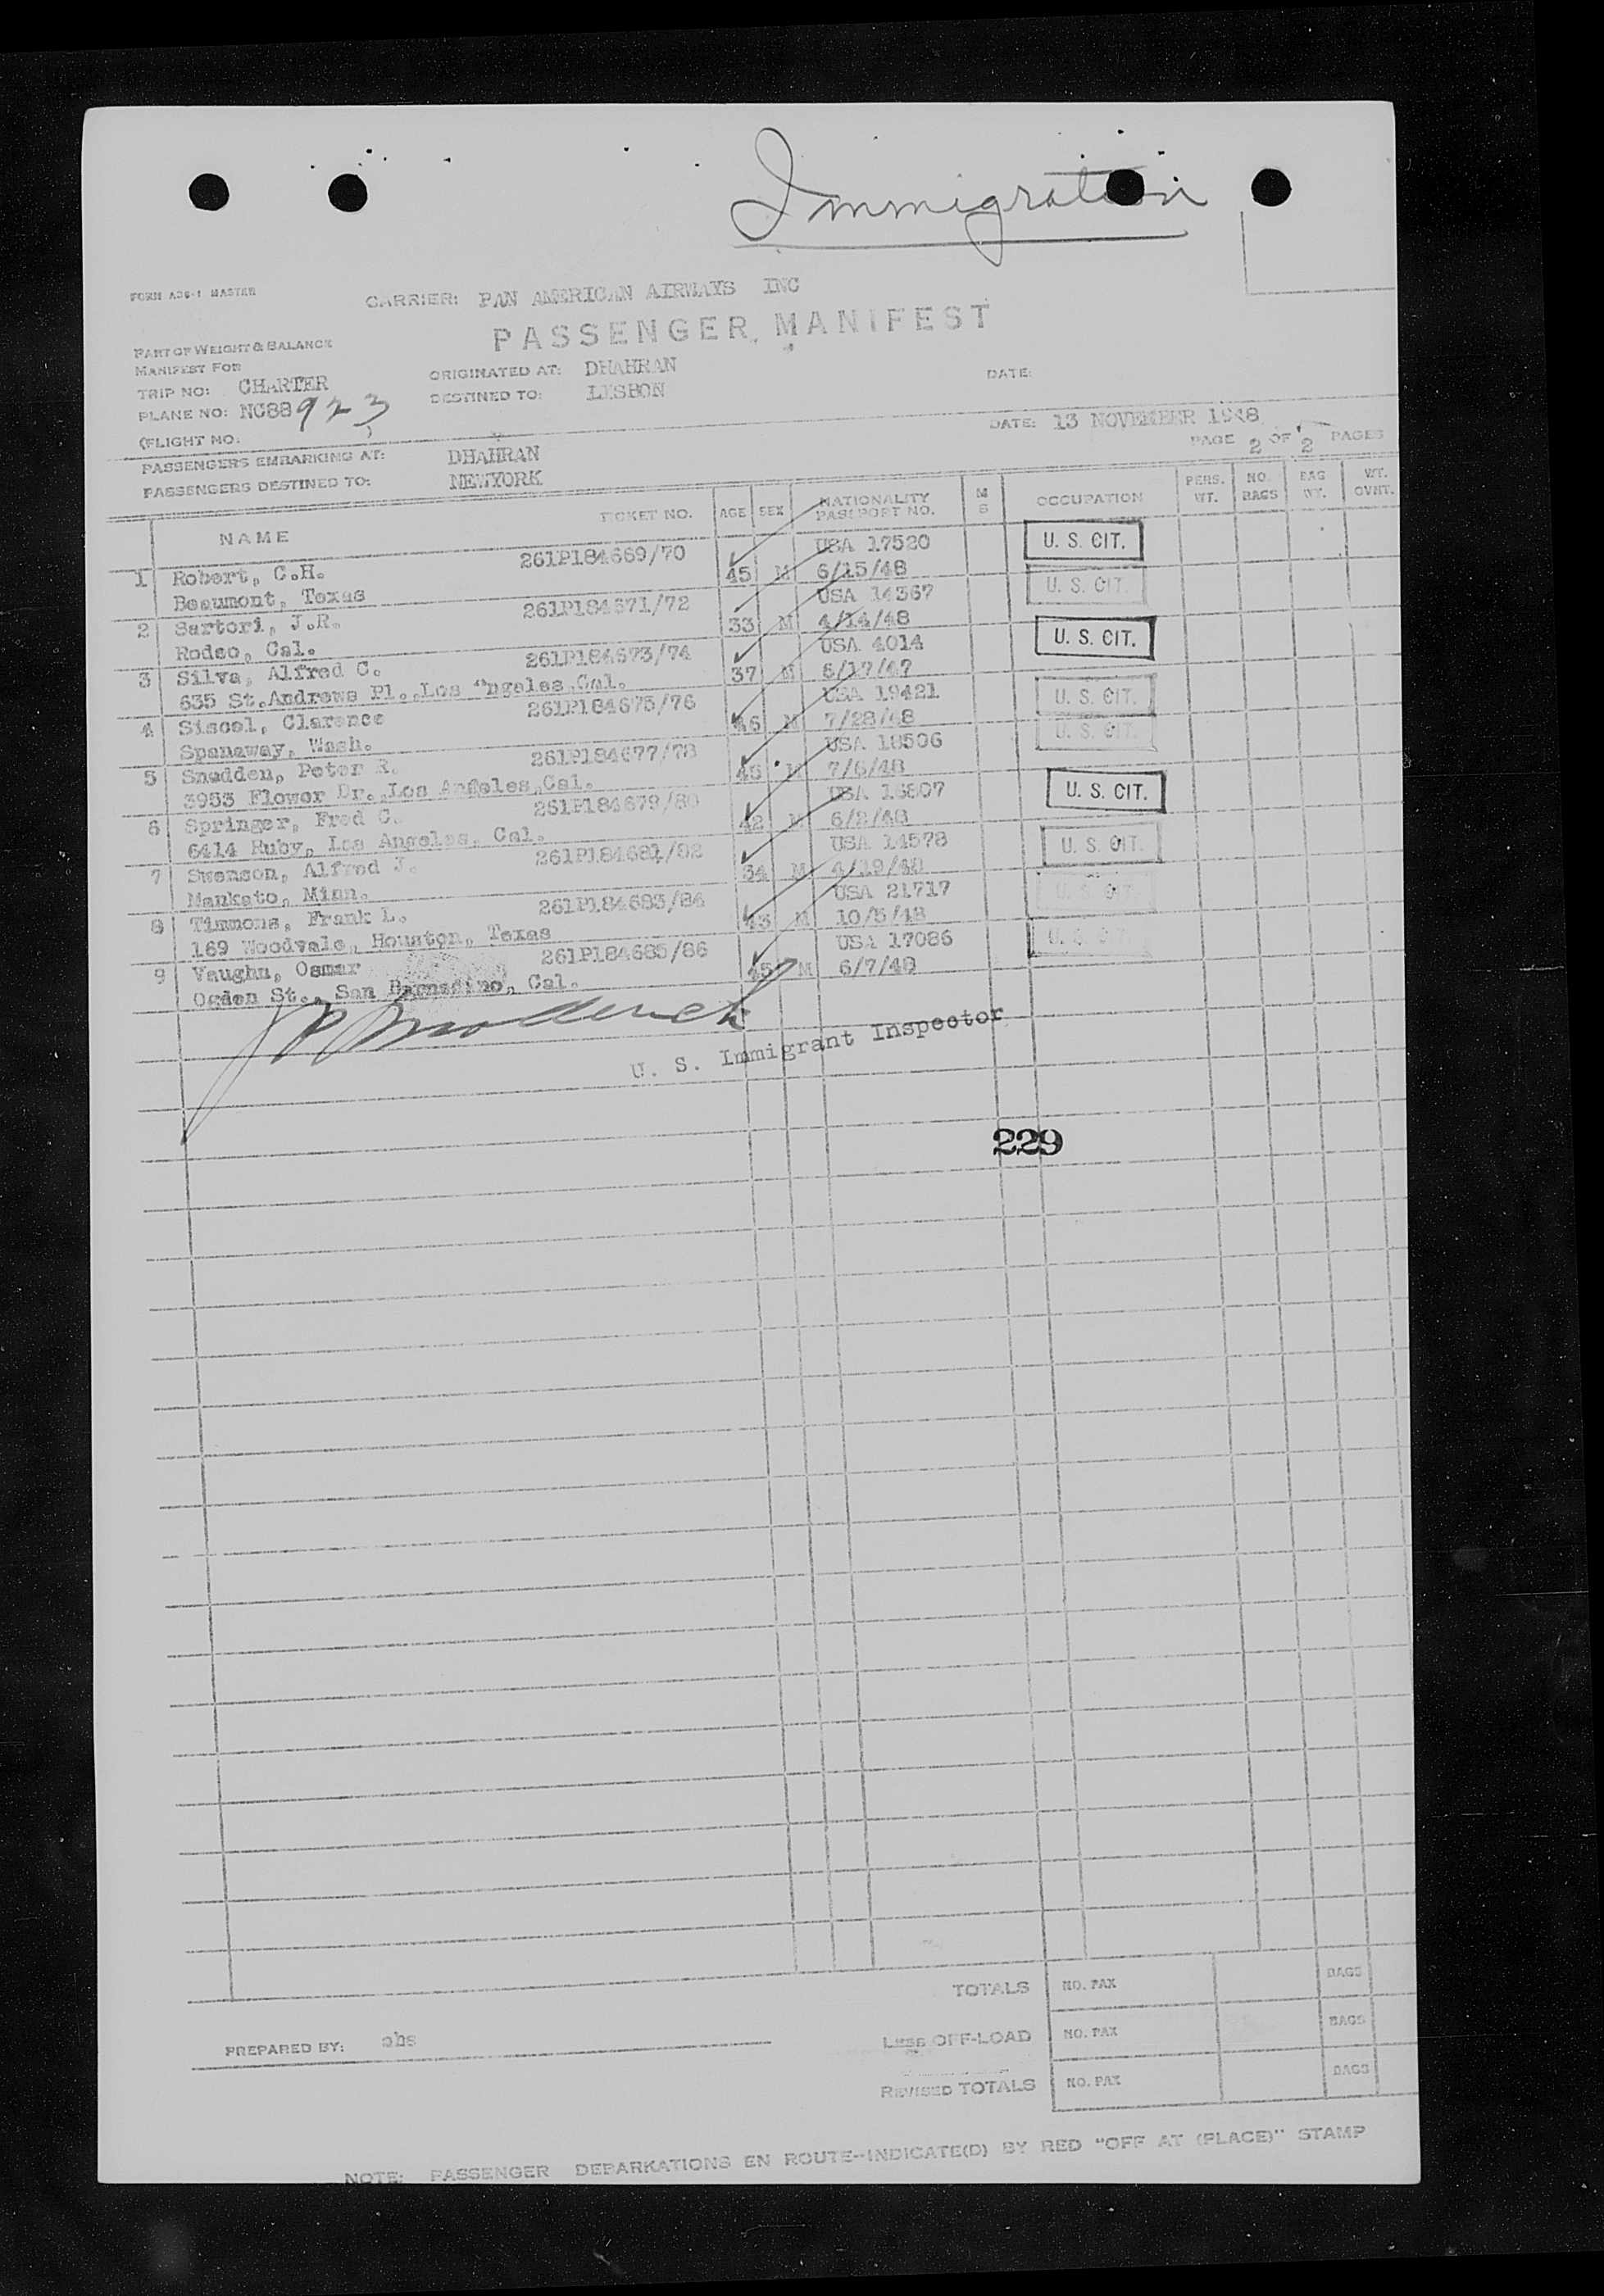 Immigration
FORM A36-1 MASTER
CARRIER: PAN AMERICAN AIRWAYS INC
PASSENGER MANIFEST
PART OF WEIGHT & BALANCE
MANIFEST FOR
TRIP NO: CHARTER
ORIGINATED AT: DHAHRAN
DATE:
PLANE NO: NC88923
DESTINED TO: LISBON
(FLIGHT NO. )
DATE: 13 NOVEMBER 1948
PAGE 2 OF 2 PAGES
PASSENGERS EMBARKING AT: DHAHRAN
PASSENGERS DESTINED TO: NEWYORK
NAME TICKET NO. AGE SEX NATIONALITY PASSPORT NO. M S OCCUPATION PERS. WT. NO. BAGS BAG WT. WT. OVHT.
261P184669/70 USA 17520 U. S. CIT.
1 Robert, C.H. 45 M 6/15/48
Beaumont, Texas 261P184671/72 USA 14367 U. S. CIT.
2 Sartori, J.R. 33 M 4/14/48
Rodeo, Cal. 261P184673/74 USA 4014 U. S. CIT.
3 Silva, Alfred C. 37 M 6/17/47
635 St.Andrews Pl.,Los "ngeles,Cal. 261P184675/76 USA 19421 U. S. CIT.
4 Siscel, Clarence 46 M 7/28/48
Spanaway, Wash. 261P184677/78 USA 18506 U. S. CIT.
5 Snedden, Peter R. 45 M 7/6/48
3953 Flower Dr.,Los Angeles,Cal. 261P184679/80 USA 16807 U. S. CIT.
6 Springer, Fred C. 42 M 6/2/48
6414 Ruby, Los Angeles, Cal. 261P184681/82 USA 14578 U. S. CIT.
7 Swenson, Alfred J. 34 M 4/19/48
Mankato, Minn. 261P184683/84 USA 21717 U. S. CIT.
8 Timmons, Frank L. 43 M 10/5/48
169 Woodvale, Houston, Texas 261P184685/86 USA 17086 U. S. CIT.
9 Vaughn, Osmar 45 M 6/7/48
Ogden St., San Barnadino, Cal.
U. S. Immigrant Inspector
229
TOTALS NO. PAX BAGS
PREPARED BY: ahs
Less OFF-LOAD NO. PAX BAGS
REVISED TOTALS NO. PAX BAGS
NOTE: PASSENGER DEBARKATIONS EN ROUTE--INDICATE(D) BY RED "OFF AT (PLACE)" STAMP